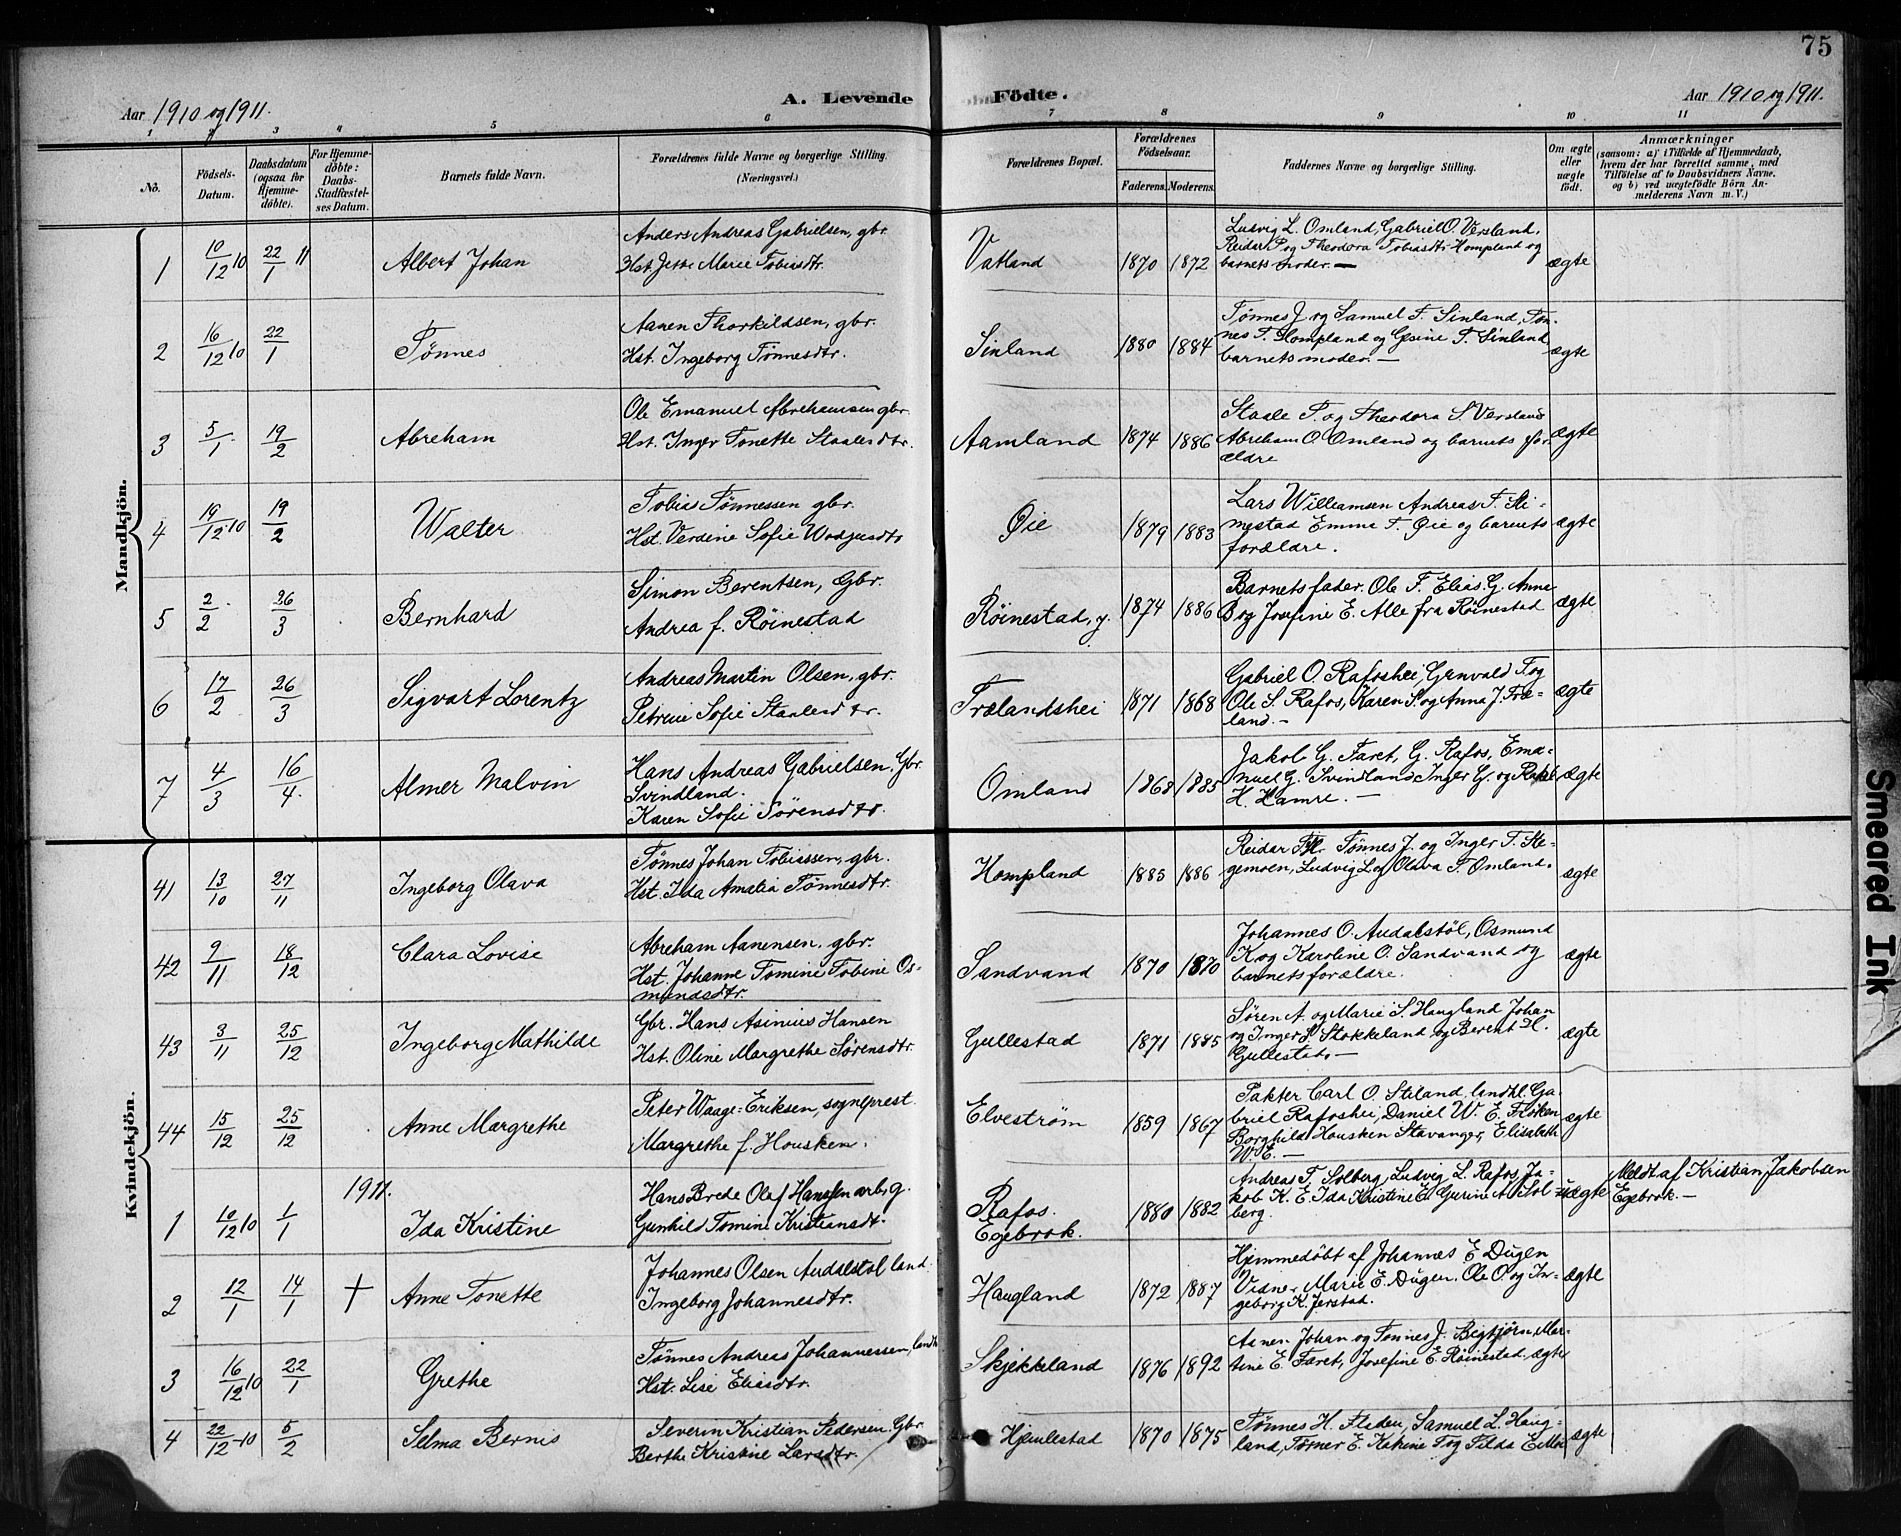 75
Aar 1910 og 1911.
A. Levende Födte.
Aar 1910 og 1911.
1 2 3 4 5 6 7 8 9 10 11
No.
Födsels-
Datum.
Daabsdatum
(ogsaa for
Hjemme-
döbte).
For Hjemme-
döbte:
Daabs-
Stadfæstel-
ses Datum.
Barnets fulde Navn.
Forældrenes fulde Navne og borgerlige Stilling.
(Næringsvei.)
Forældrenes Bopæl.
Forældrenes
Födselsaar.
Faderens. Moderens.
Faddernes Navne og borgerlige Stilling.
Om ægte
eller
uægte
födt.
Anmærkninger
(saasom: a) i Tilfælde af Hjemmedaab,
hvem der har forrettet samme, med
Tilföielse af to Daabsvidners Navne,
og b) ved uægtefödte Börn An-
melderens Navn m. V.)
Mandkjön.
1 10/12 10 22/1 11 Albert Johan
Anders Andreas Gabrielsen, gbr.
Hst. Jette Marie Tobiasdtr.
Vatland 1870 1872
Ludvig L. Omland, Gabriel O. Versland,
Reidar P. og Theodora Tobiasdtr Hompland og
barnets moder. —
ægte
2 16/12 10 22/1 Tønnes
Aanen Thorkildsen, gbr.
Hst. Ingeborg Tønnesdtr.
Sinland 1880 1884
Tønnes J. og Samuel T. Sinland, Tøn-
nes T. Hompland og Gesine T. Sinland
barnets moder. —
ægte
3 5/1 19/2 Abreham
Ole Emanuel Abrehamsen gbr.
Hst. Inger Tonette Staalesdtr.
Aamland 1874 1886
Staale T. og Theodora S. Versland
Abreham O. Omland og barnets for-
ældre
ægte
4 19/12 10 19/2 Walter
Tobias Tønnessen gbr.
Hst. Verdine Sofie
Øie 1879 1883
Lars Williamsen Andreas T. Sli-
mestad Emme T. Øie og barnets
forældre.
ægte
5 2/2 26/3 Bernhard
Simon Berentsen, Gbr.
Andrea f. Röinestad
Röinestad, y. 1874 1886
Barnets fader. Ole F. Elias G. Anne
B og Josefine E. Alle fra Röinestad
ægte
6 17/2 26/3 Sigvart Lorentz
Andreas Martin Olsen, gbr.
Petrine Sofie Staalesdtr.
Trælandshei 1871 1868
Gabriel O. Rafoshei, Genvald T og
Ole S. Rafos, Karen S. og Anna J. Træ-
land. —
ægte
7 4/3 16/4 Almer Malvin
Hans Andreas Gabrielsen. Gbr.
Svindland.
Karen Sofie Sörensdtr.
Omland 1868 1885
Jakob G. Faret, G. Rafos, Ema-
nuel G. Svindland Inger G. og Rakel
H. Lamre. —
ægte
Kvindekjön.
41 13/10 27/11 Ingeborg Olava
Tønnes Johan Tobiassen, gbr.
Hst. Ida Amalia Tønnesdtr.
Hompland 1885 1886
Reidar Tønnes J. og Inger T. Ste-
gemoen, Ludvig L og Olava T. Omland.
ægte
42 9/11 18/12 Clara Lovise
Abreham Aanensen, gbr.
Hst. Johanne Tomine Tobine Os-
mundsdtr.
Sandvand 1870 1870
Johannes O. Audalstöl, Osmund
K og Karoline O. Sandvand og
barnets forældre.
ægte
43 3/11 25/12 Ingeborg Mathilde
Gbr. Hans Asinius Hansen
Hst. Oline Margrethe Sørensdtr.
Gullestad 1871 1885
Søren A. og Marie S. Haugland Johan
og Inger S. Stokkeland og Berent H.
Gullestad. —
ægte
44 15/12 25/12 Anne Margrethe
Peter Waage-Eriksen, sogneprest.
Margrethe f. Housken.
Elveström 1859 1867
Pakter Carl O. Stiland, landhl. Ga-
briel Rafoshei, Daniel W. E. Fløken
Borghild Housken Stavanger, Elisabeth
W. E. —
ægte
1911.
1 10/12 10 1/1 Ida Kristine
Hans Brede Olaf Hanssen arb. g.
Gunhild Tomine Kristiansdtr.
Rafos.
Egebrok.
1880 1882
Andreas T. Solberg, Ludvig L. Rafos, Ja-
kob K. E. Ida Kristine E Gurine A Sol-
berg.
uægte
Meldt af Kristian Jakobsen
Egebrok. —
2 12/1 14/1 † Anne Tonette
Johannes Olsen Audalstöl land.
Ingeborg Johannesdtr.
Haugland 1872 1887
Hjemmedöbt af Johannes E Dugen
Vidner Marie E. Dugen, Ole O. og In-
geborg K. Jerstad.
ægte
3 16/12 10 22/1 Grethe
Tønnes Andreas Johannessen, landh
Hst. Lise Eliasdtr.
Skjekkeland 1876 1892
Aanen Johan og Tønnes J. Bigtjörn, Mar-
tine E. Faret, Josefine E. Röinestad.
ægte
4 22/12 -10 5/2 Selma Bernis
Severin Kristian Pedersen. Gbr.
Berthe Kristine Larsdtr.
Hjemlestad 1870 1875
Tønnes H. Fladen, Samuel L. Haug-
land, Tørner E. Katrine T og Tilda E.
ægte
Smeared Ink